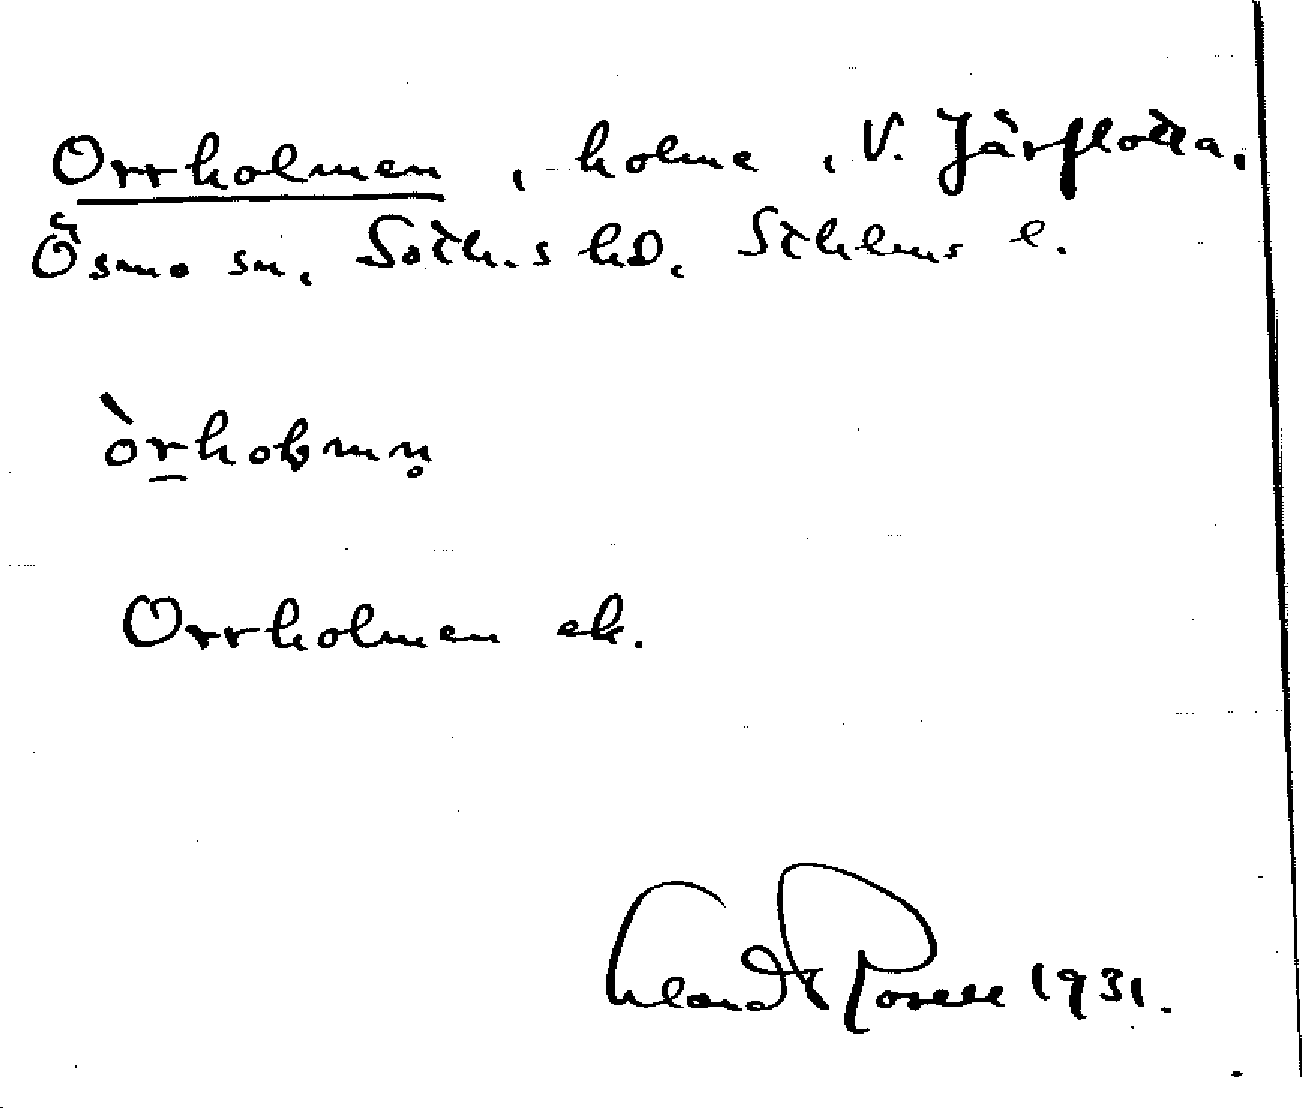 Orrholmen, holme, V. Järflotta,
Ösmo sn, Soth.s hd, Sthlms l.
òrholmn̥
Orrholmen ek.
Erland Rosell 1931.